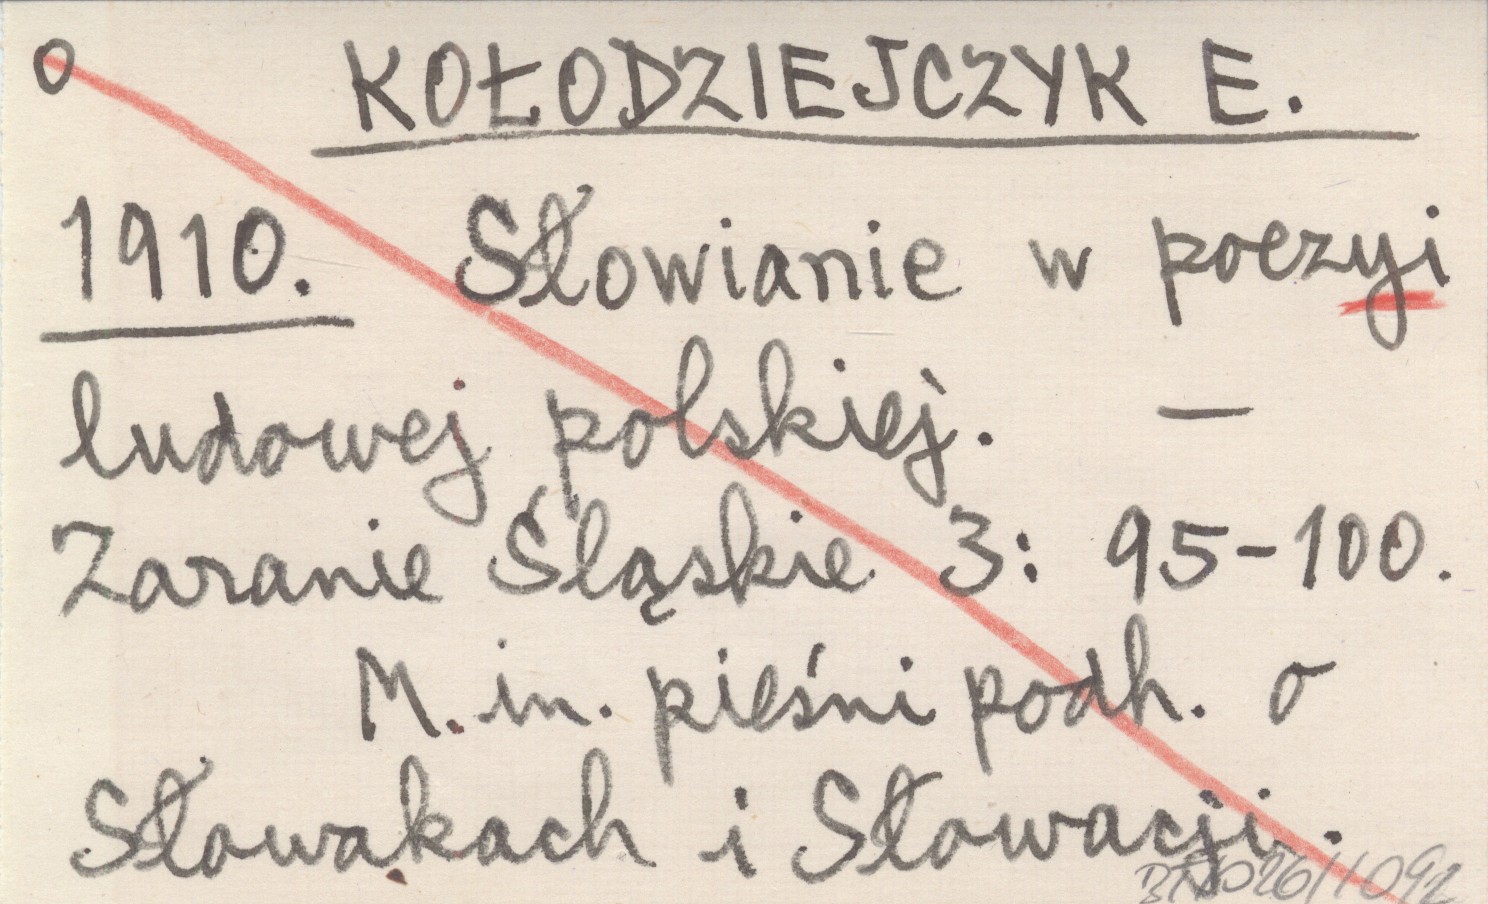 o KOŁODZIEJCZYK E.
1910. Słowianie w poezyi
ludowej polskiej. —
Zaranie Śląskie 3: 95-100.
M. in. pieśni podh. o
Słowakach i Słowacji.